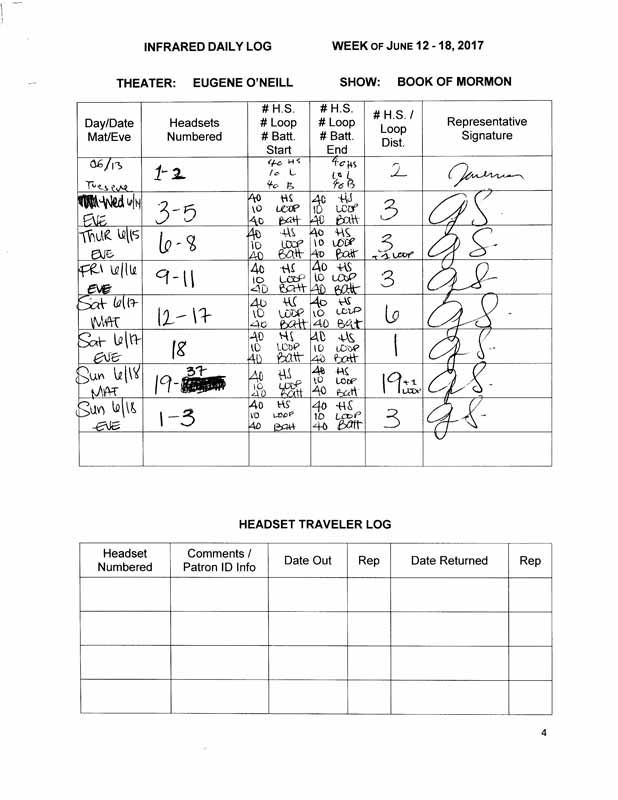 INFRARED DAILY LOG WEEK OF JUNE 12 - 18, 2017
THEATER: EUGENE O'NEILL SHOW: BOOK OF MORMON
Day/Date Mat/Eve Headsets Numbered # H.S. # Loop # Batt. Start # H.S. # Loop # Batt. End # H.S. / Loop Dist. Representative Signature
06/13 Tues eve 1-2 40 HS 10 L 40 B 40 HS 10 L 40 B 2
Wed 6/14 EVE 3-5 40 HS 10 LOOP 40 Batt 40 HS 10 LOOP 40 Batt 3 GS
THUR 6/15 EVE 6-8 40 HS 10 LOOP 40 Batt 40 HS 10 LOOP 40 Batt 3 +1 LOOP GS
FRI 6/16 EVE 9-11 40 HS 10 LOOP 40 BATT 40 HS 10 LOOP 40 BATT 3 GS
Sat 6/17 MAT 12-17 40 HS 10 LOOP 40 BATT 40 HS 10 LOOP 40 BATT 6 GS
Sat 6/17 EVE 18 40 HS 10 LOOP 40 Batt 40 HS 10 LOOP 40 Batt 1 GS
Sun 6/18 MAT 19-37 40 HS 10 LOOP 40 BATT 40 HS 10 LOOP 40 BATT 19 +1 LOOP GS
Sun 6/18 EVE 1-3 40 HS 10 LOOP 40 BATT 40 HS 10 LOOP 40 BATT 3 GS
HEADSET TRAVELER LOG
Headset Numbered Comments / Patron ID Info Date Out Rep Date Returned Rep
4